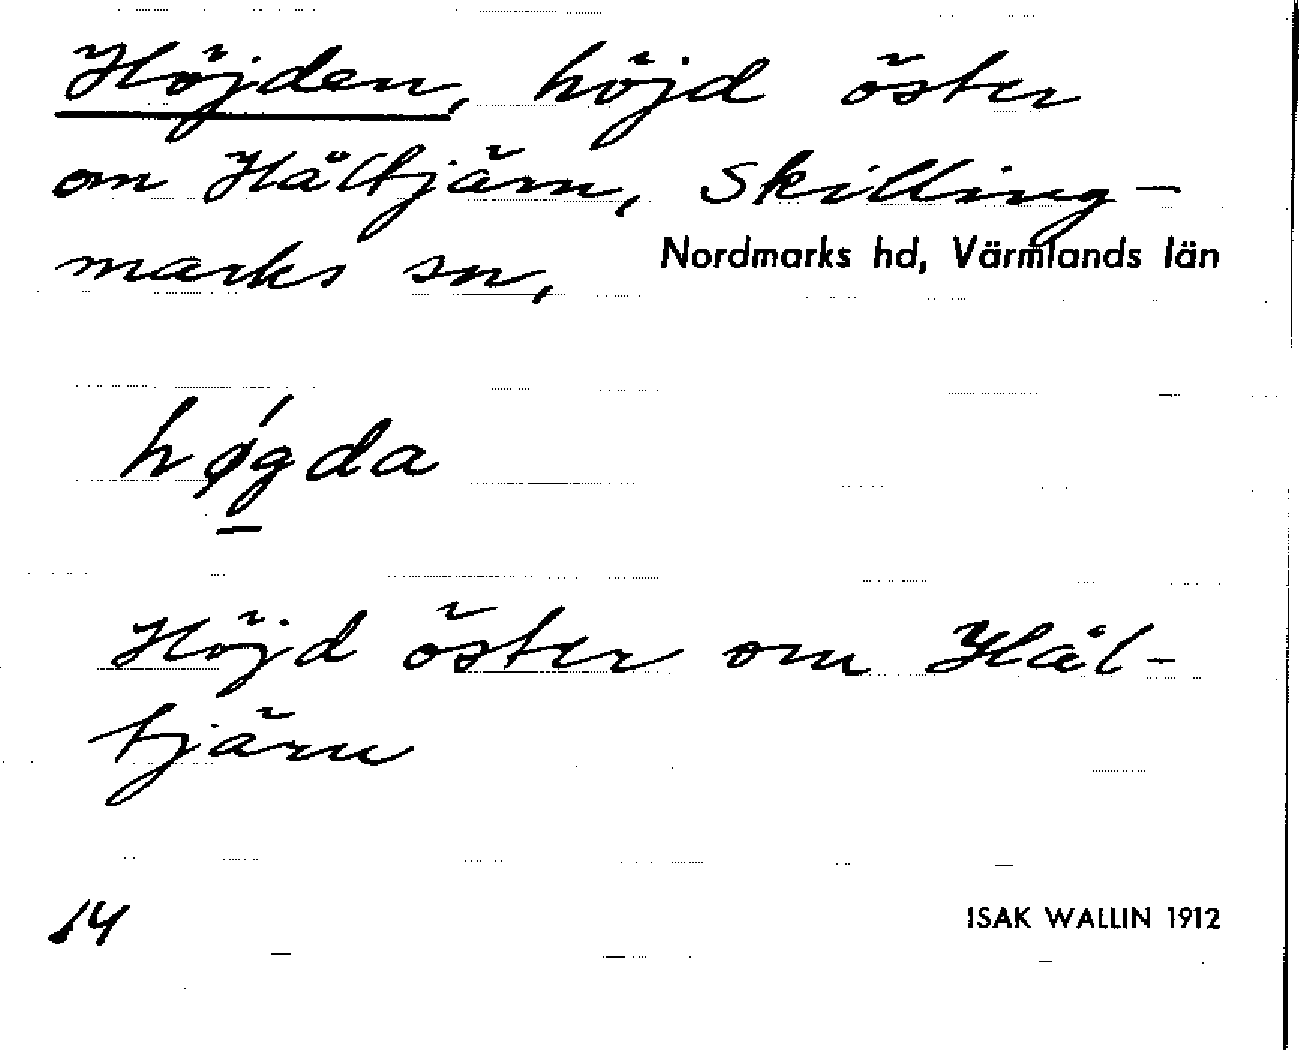 Höjden, höjd öster
om Håltjärn, Skilling-
marks sn, Nordmarks hd, Värmlands län
hǿgda
Höjd öster om Hål-
tjärn
14 ISAK WALLIN 1912